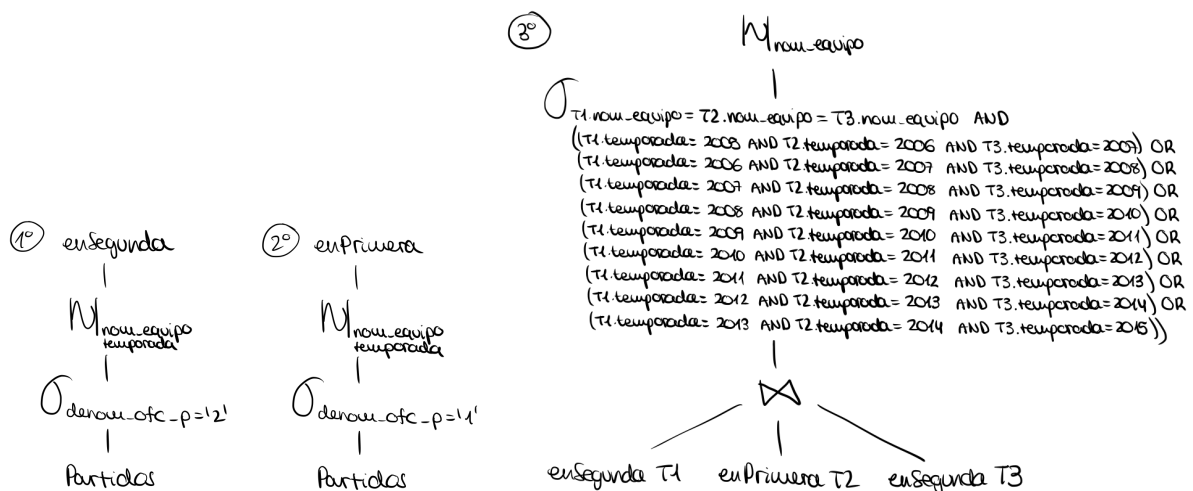 1º
enSegunda
Π nom_equipo
temporada
σ denom_ofc_p='2'
Partidos
2º
enPrimera
Π nom_equipo
temporada
σ denom_ofc_p='1'
Partidos
3º
Π nom_equipo
σ T1.nom_equipo = T2.nom_equipo = T3.nom_equipo AND
((T1.temporada= 2005 AND T2.temporada= 2006 AND T3.temporada=2007) OR
(T1.temporada= 2006 AND T2.temporada= 2007 AND T3.temporada=2008) OR
(T1.temporada= 2007 AND T2.temporada= 2008 AND T3.temporada=2009) OR
(T1.temporada= 2008 AND T2.temporada= 2009 AND T3.temporada=2010) OR
(T1.temporada= 2009 AND T2.temporada= 2010 AND T3.temporada=2011) OR
(T1.temporada= 2010 AND T2.temporada= 2011 AND T3.temporada=2012) OR
(T1.temporada= 2011 AND T2.temporada= 2012 AND T3.temporada=2013) OR
(T1.temporada= 2012 AND T2.temporada= 2013 AND T3.temporada=2014) OR
(T1.temporada= 2013 AND T2.temporada= 2014 AND T3.temporada=2015))
⋈
enSegunda T1 enPrimera T2 enSegunda T3